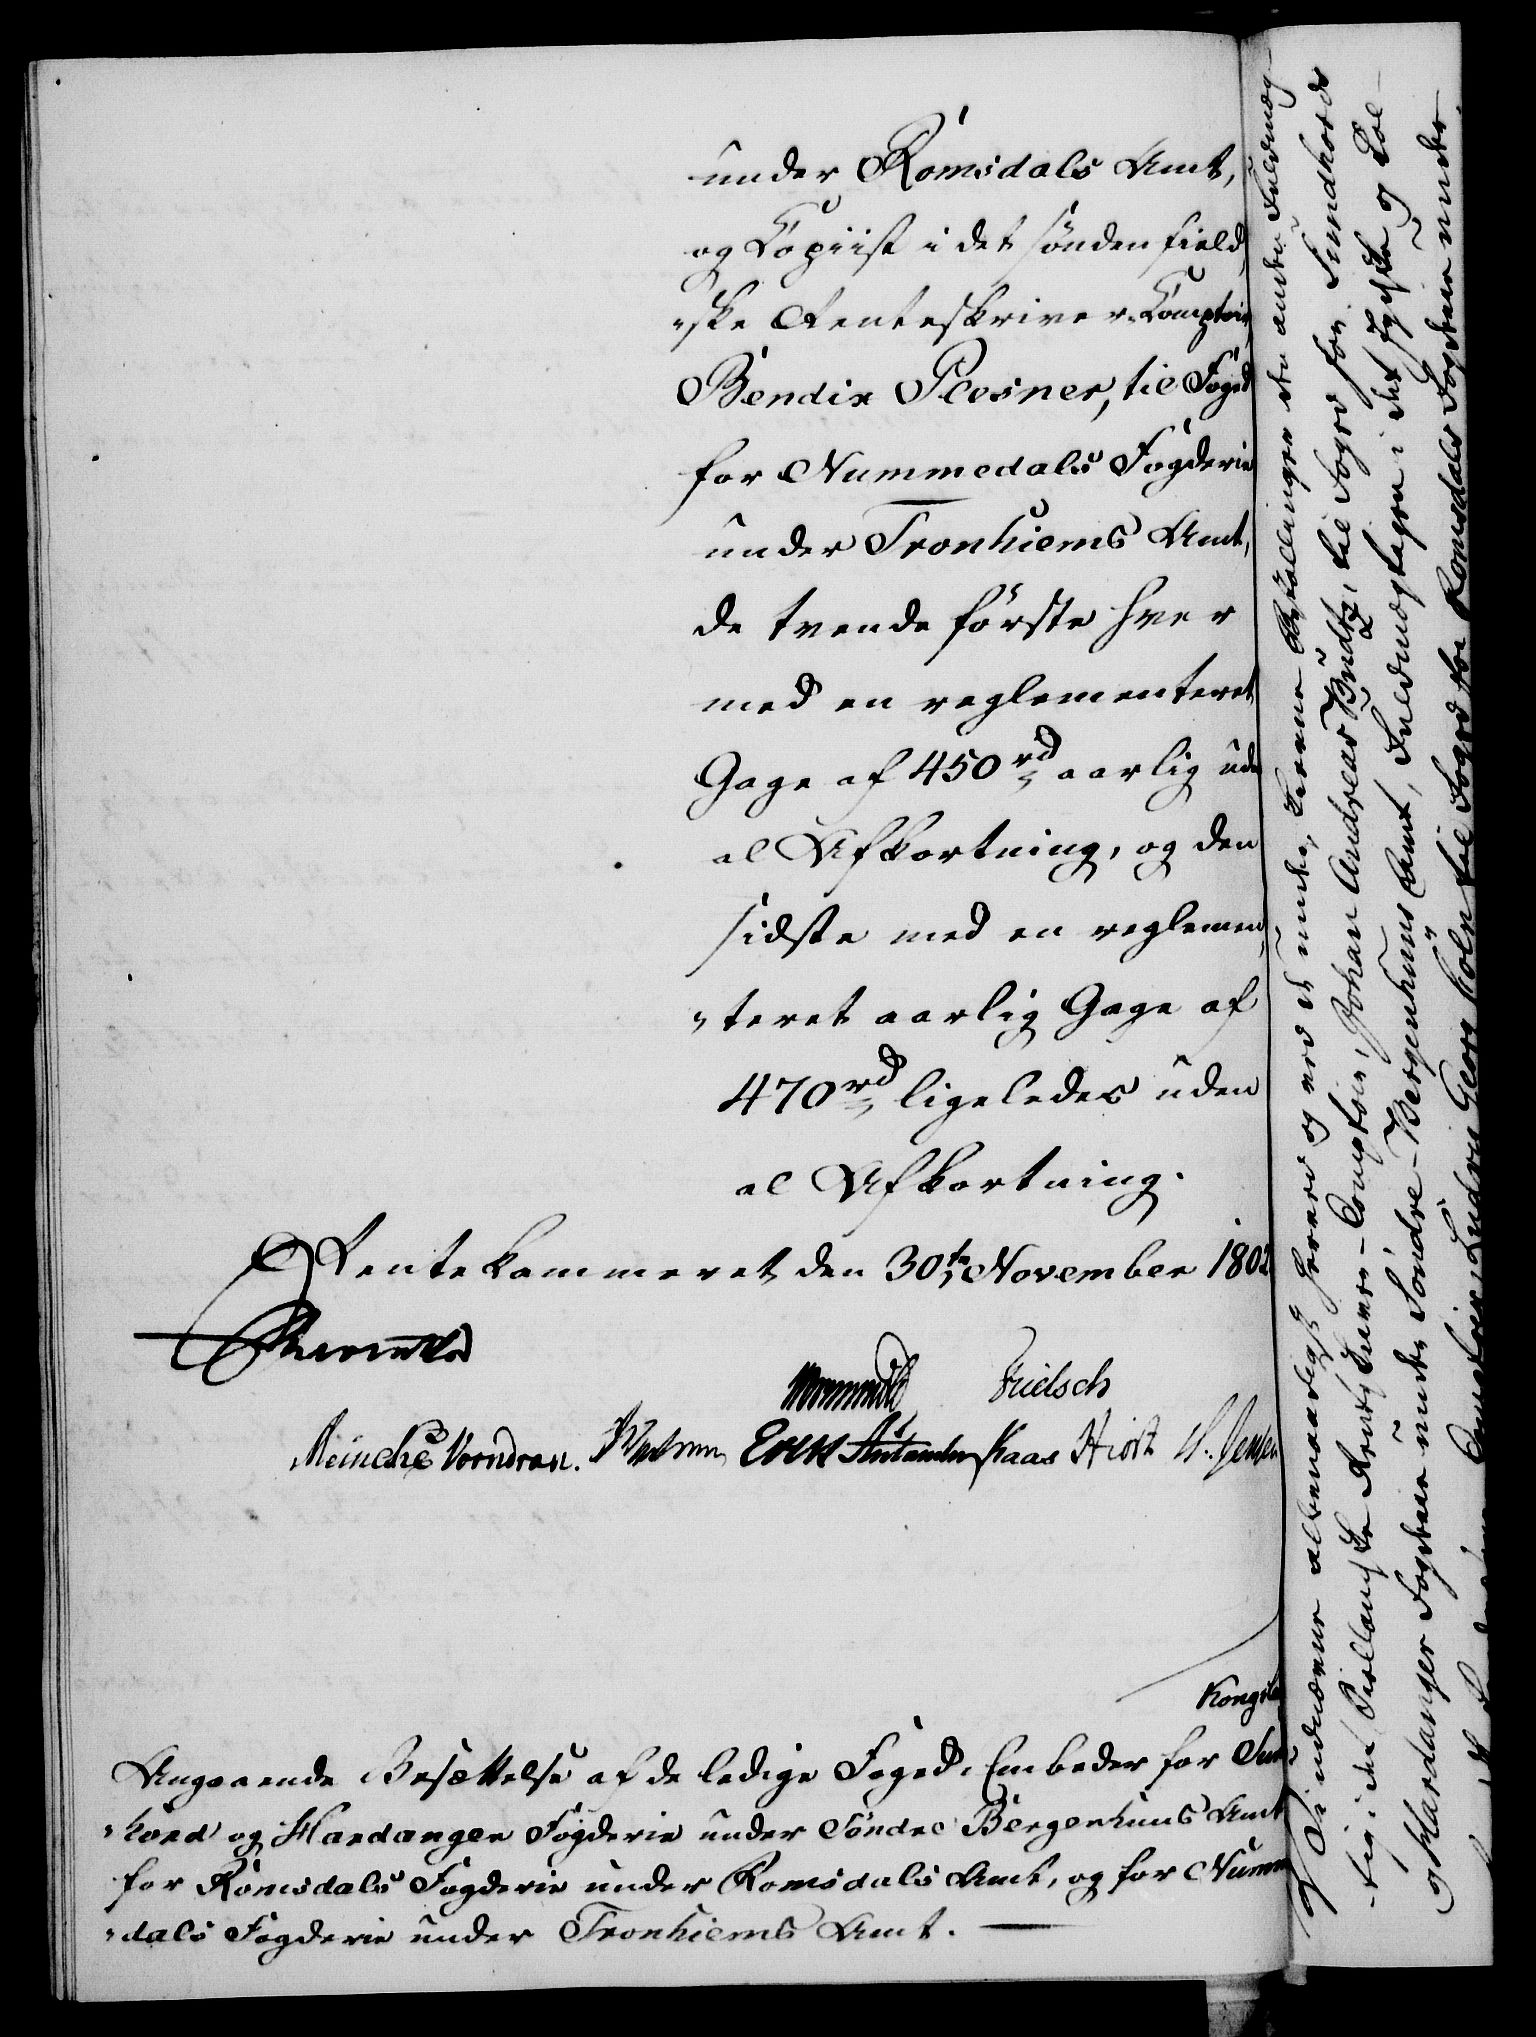 under Romsdals Amt,
og Copiist i det søndenfield-
„ske Renteskriver-Comptoir
Bendix Plesner, til Foged
for Nummedals Fogderie
under Tronhiems Amt,
de tvende første hver
med en reglementeret
Gage af 450 rd aarlig uden
al Afkortning, og den
sidste med en reglemen-
„teret aarlig Gage af
470 rd ligeledes uden
al Afkortning.
Rentekammeret den 30te November 1802
Reventlow
Wormskiold Frielsch
Meincke Vorndran. Kaas Hiort H. Jensen
Kongl:
Angaaende Besættelse af de ledige Foged-Embeder for Sun-
„hord og Hardanger Fogderie under Søndre Bergenhuus Amt
for Romsdals Fogderie under Romsdals Amt, og for Numme-
„dals Fogderie under Tronhiems Amt.
Vi udnævne allernaadigst hermed og ved de under, Fuldmæg-
-tig i det Siællandske Rente Comptoir, Johan Andreas Budtz, til Foged for Sundhords
og Hardanger Fogderie under Søndre-Bergenhuus Amt, Fuldmægtigen i det Jydske og
Comptoir, Ludvig Georg til Foged for Romsdals Fogderie under